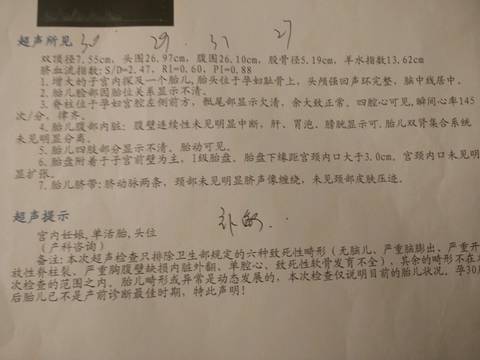 超声所见 30 29 31 27
双顶径7.55cm，头围26.97cm，腹围26.10cm，股骨径5.19cm，羊水指数13.62cm
脐血流指数：S/D=2.47，RI=0.60，PI=0.88
1. 增大的子宫内探及一个胎儿，胎头位于孕妇耻骨上，头颅强回声环完整，脑中线居中。
2. 胎儿脸部因胎位关系显示不清。
3. 脊柱位于孕妇宫腔左侧前方，骶尾部显示欠清，余大致正常。四腔心可见，瞬间心率145
次/分，律齐。
4. 胎儿腹部内脏：腹壁连续性未见明显中断，肝、胃泡、膀胱显示可。胎儿双肾集合系统
未见明显分离。
5. 胎儿四肢部分显示不清。胎动可见。
6. 胎盘附着于子宫前壁为主，1级胎盘。胎盘下缘距宫颈内口大于3.0cm，宫颈内口未见明
显扩张。
7. 胎儿脐带：脐动脉两条，颈部未见明显脐声像缠绕，未见颈部皮肤压迹。
超声提示
宫内妊娠，单活胎，头位
（产科咨询）
备注：本次超声检查只排除卫生部规定的六种致死性畸形（无脑儿、严重脑膨出、严重开
放性脊柱裂、严重胸腹壁缺损内脏外翻、单腔心、致死性软骨发育不全），其余的畸形不在本
次检查的范围之内。胎儿畸形或异常是动态发展的，本次检查仅说明目前的胎儿状况。孕30周
后胎儿已不是产前诊断最佳时期，特此声明！